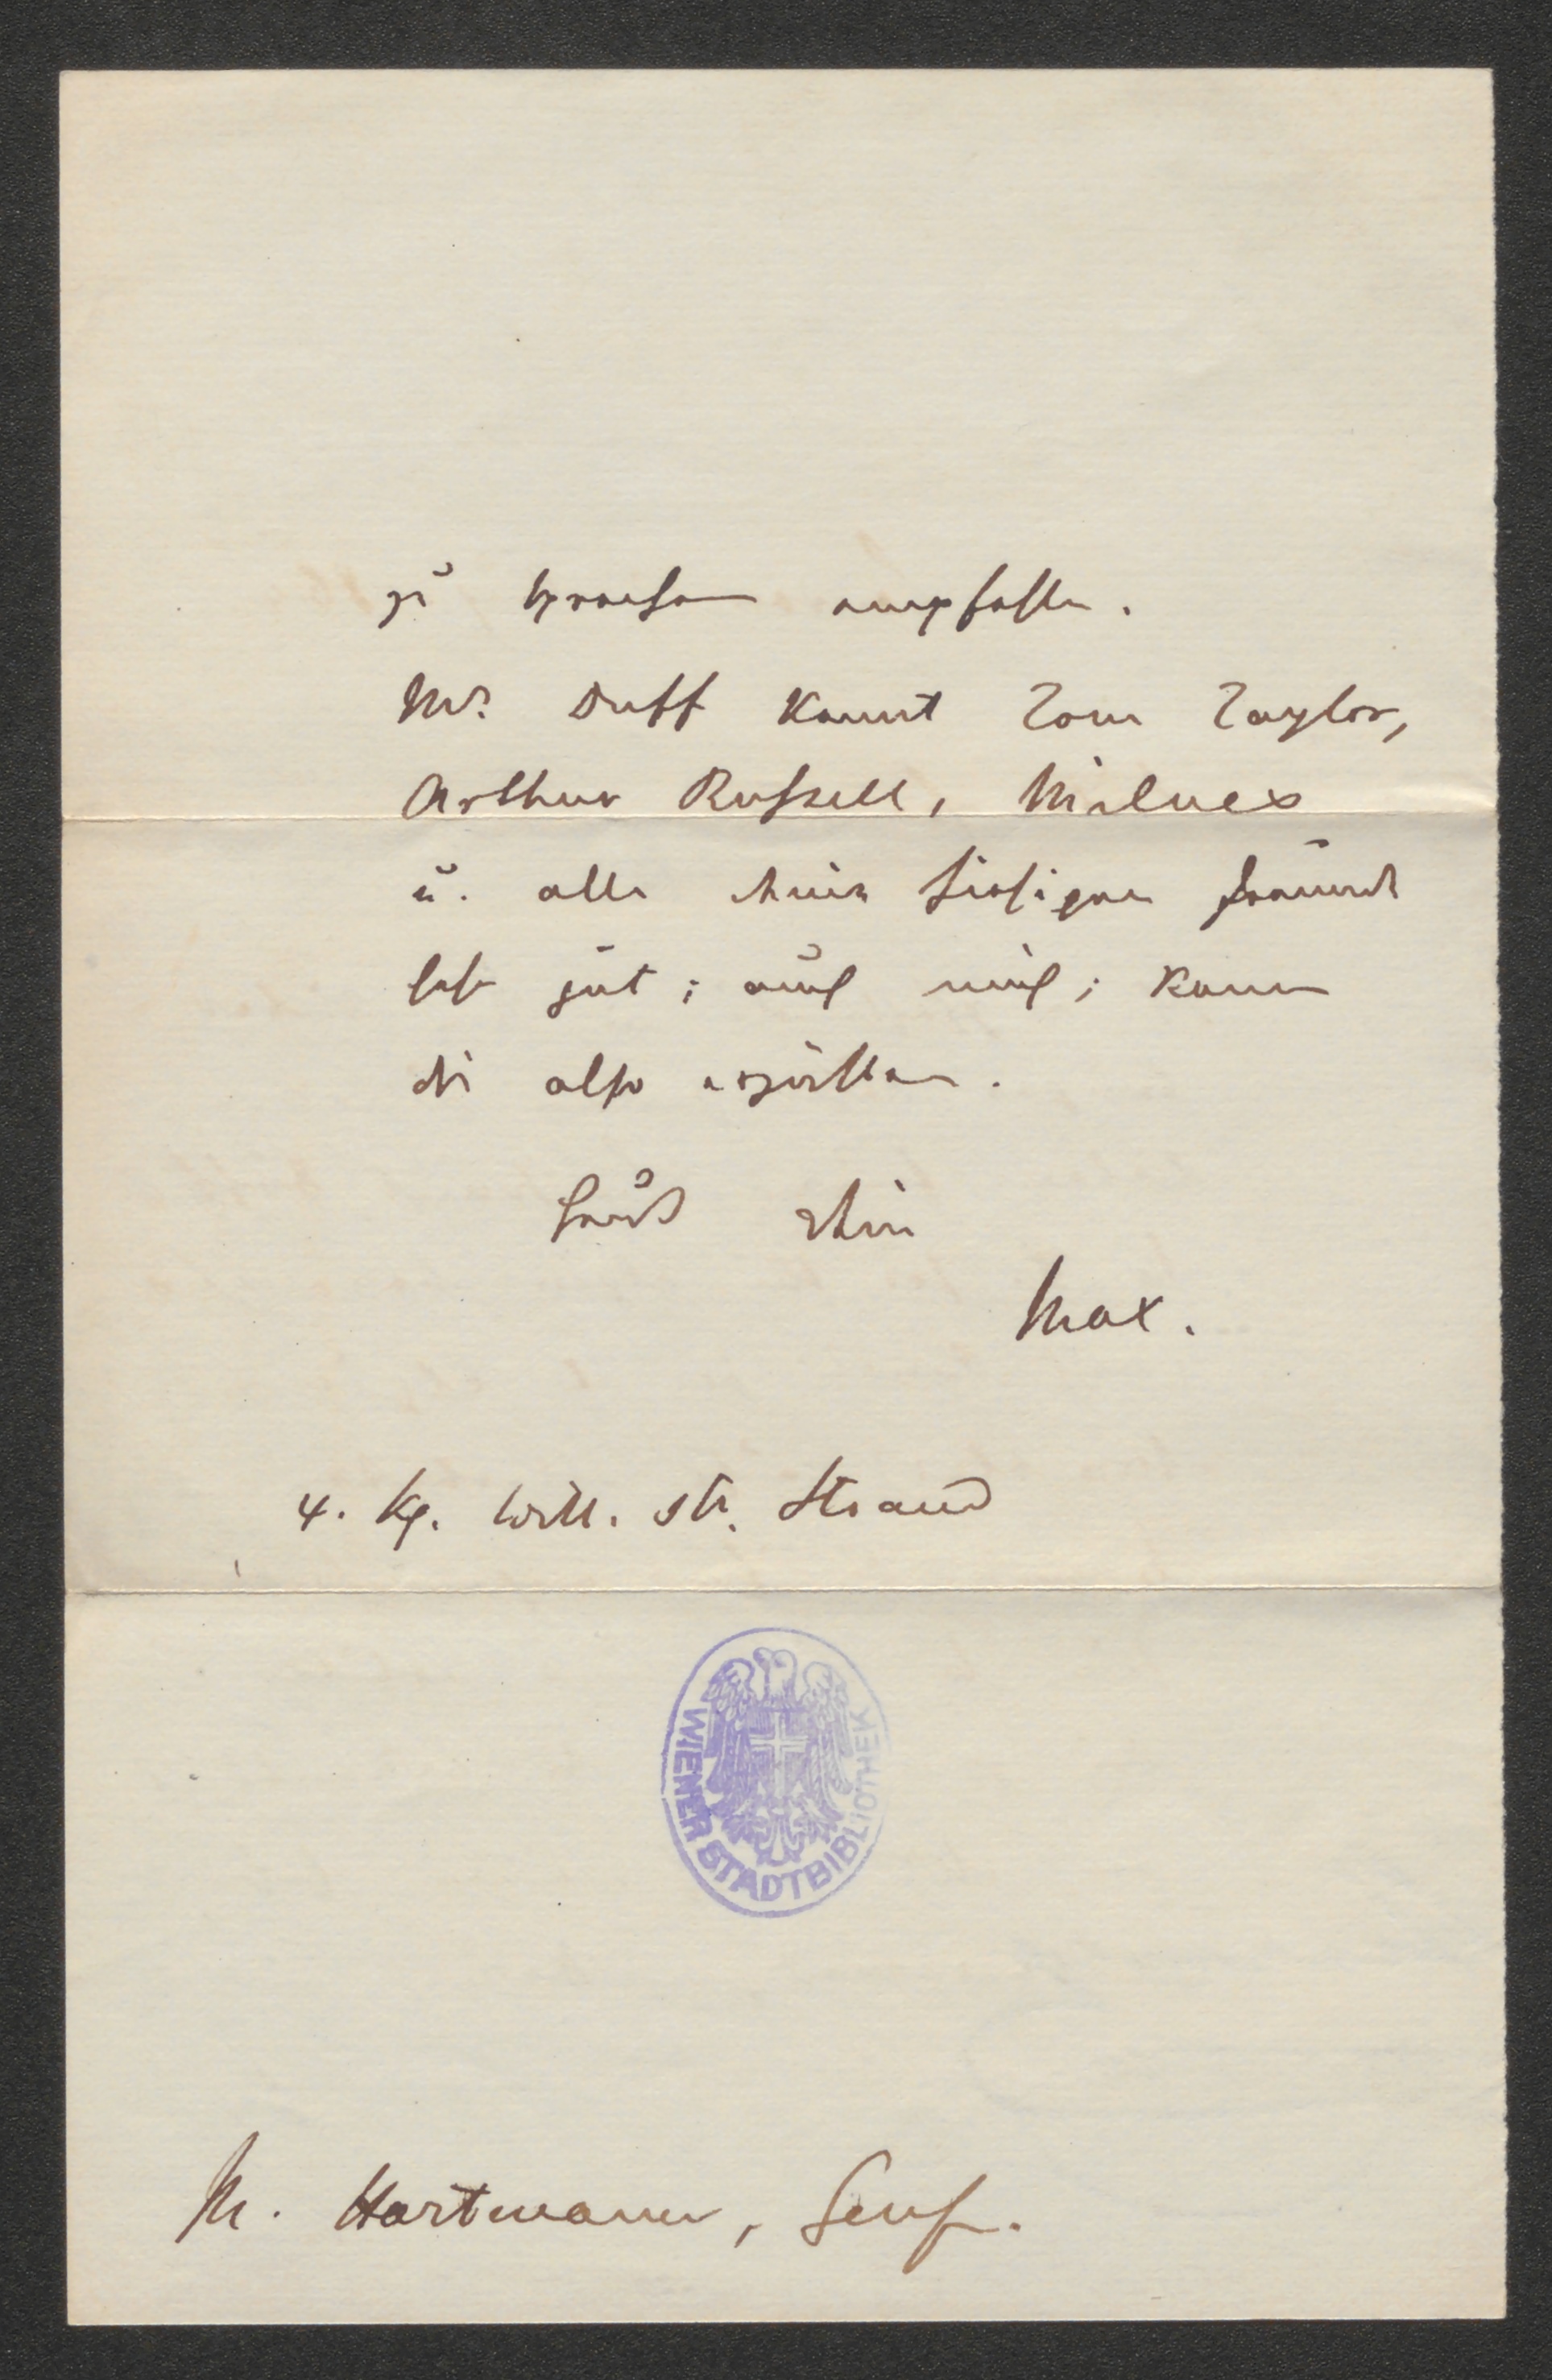 zu sprechen empfehlen.
Mr. Duff kennt Tom Taylor,
Arthur Russell, Milnes
u. alle deine hiesigen Freunde
sehr gut; auch mich; kann
dir also erzählen.
Grüß dein
Max.
4. Kg. Will. Str. Strand
WIENER STADTBIBLIOTHEK
M. Hartmann, Genf.